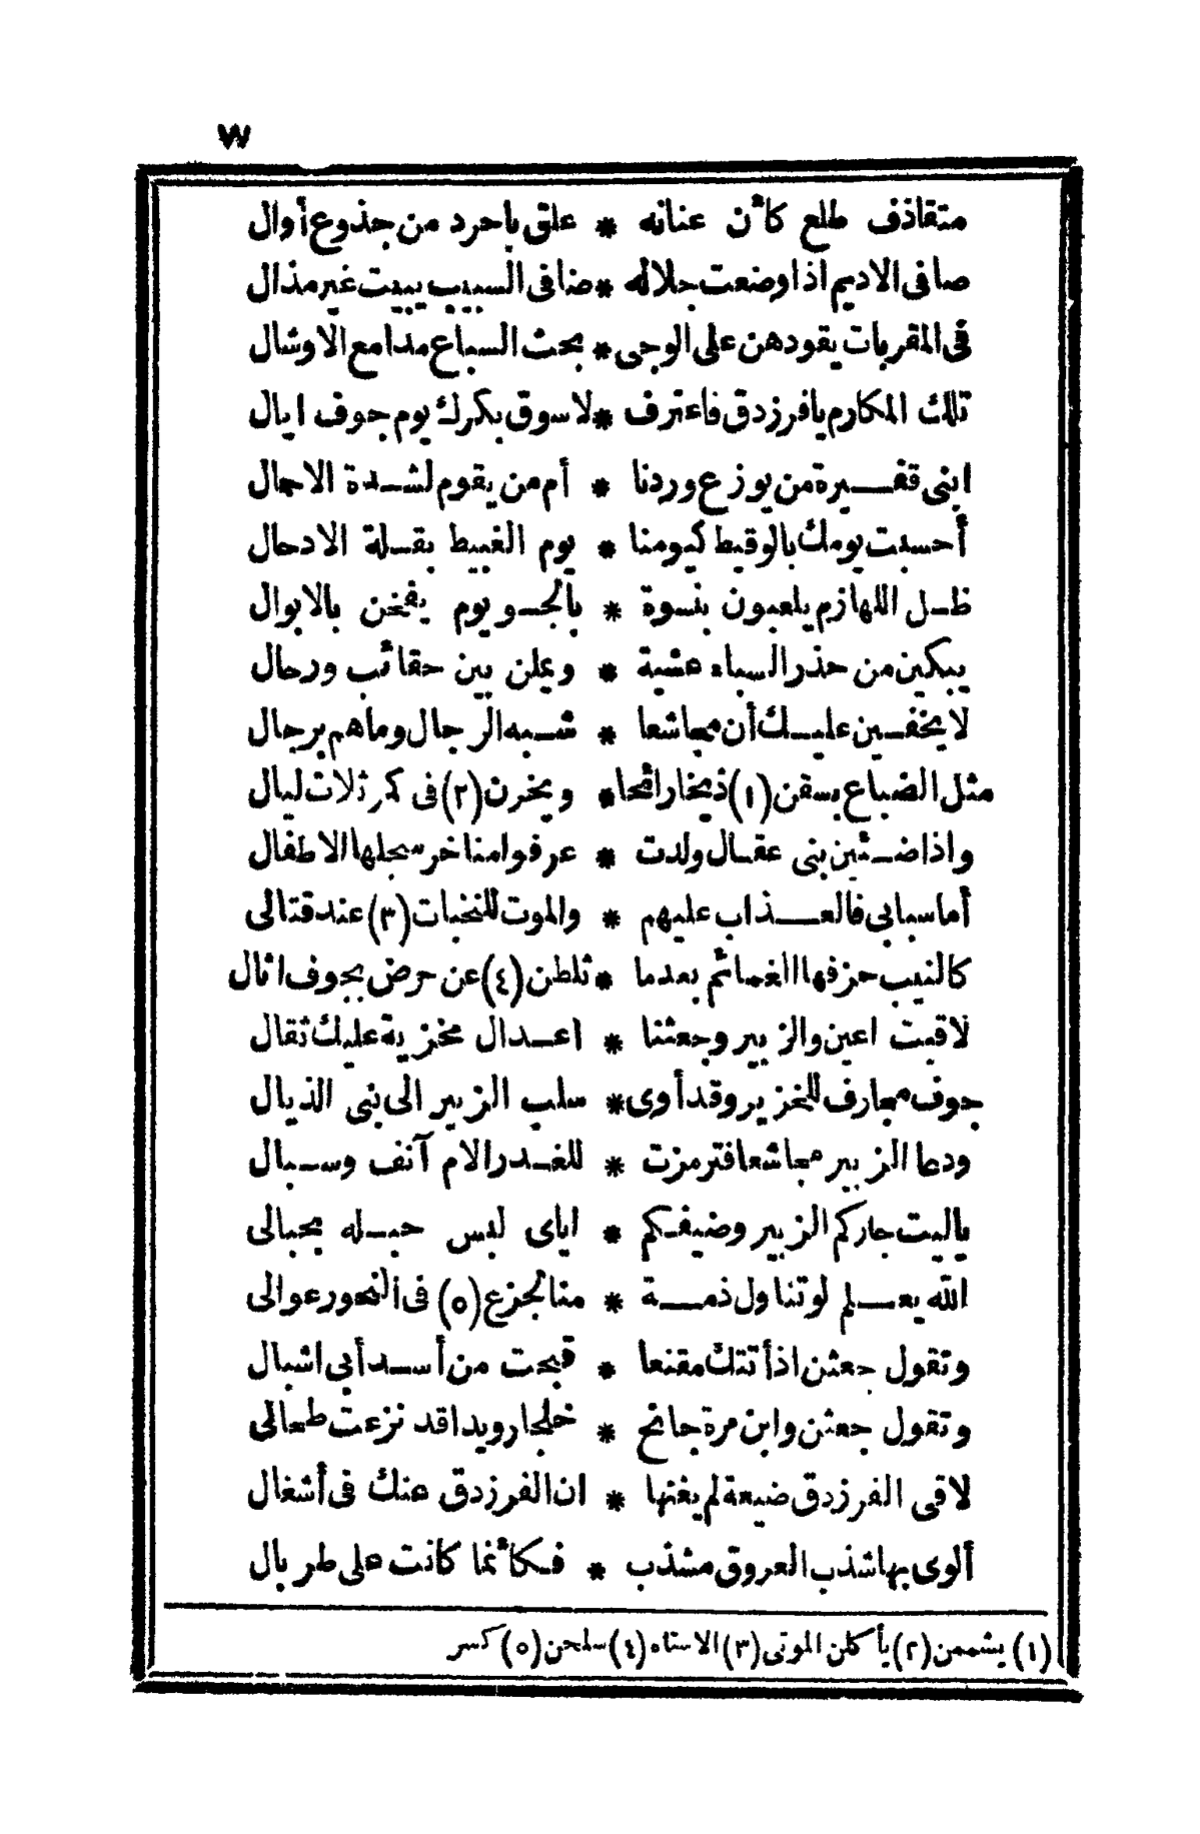 ٧٧
متقاذف طلع كأن عنانه * علق بأحرد من جذوع أوال
صافى الاديم اذا وضعت جلاله * ضافى السبيب يبيت غير مذال
فى المقربات يقودهن على الوجى * بحث السباع مدامع الاوشال
تلك المكارم يافرزدق فاعترف * لا سوق بكرك يوم جوف ابال
ابنى قفـيرة من يوزع وردنا * أم من يقوم لشـدة الاحمال
أحسبت يومك بالوقيط كيومنا * يوم الغبيط بقـلة الادحال
ظـل اللهازم يلعبون بنسوة * بالجـو يوم يفخن بالابوال
يبكين من حذر السباء عشية * ويملن بين حقائب ورحال
لا يخفـين عليـك أن مجاشعا * شـبه الرجال وما هم برجال
مثل الضباع يسقن (١) ذيخا رائحا * ويخرن (٢) فى كمر ثلاث ليال
واذا ضـئين بنى عقـال ولدت * عرفوا مناخر سخلها الاطفال
أما سبابى فالعـذاب عليهم * والموت للنخبات (٣) عند قتالى
كالنيب خزفها الغمائم بعدما * ثلطن (٤) عن حرض بجوف اثال
لاقيت اعين والزبير وجعثنا * اعـدال مخزية عليك ثقال
جوف مجارف للخزير وقد أوى * سلب الزبير الى بنى الذيال
ودعا الزبير مجاشعا فترمزت * للغـدر الام آنف وسـبال
ياليت جاركم الزبير وضيفـكم * اياى لبس حبـله بحبالى
الله يعـلم لو تناول ذمـة * منا لجزع (٥) فى النحور عوالى
وتقول جعثن اذ أتتك مقنعا * قبحت من أسـد أبى اشبال
وتقول جعثن وابن مرة جانح * خلجا رويدا قد نزعت طحالى
لاقى الفرزدق ضيعة لم يغنها * ان الفرزدق عنك فى أشغال
ألوى بها شذب العروق مشذب * فـكأنما كانت على طربال
(١) يشممن (٢) يأكلن الموتى (٣) الاستاه (٤) سلحن (٥) كسر